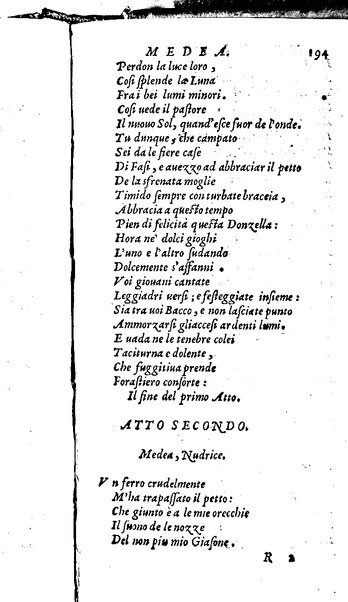 MEDEA. 194
Perdon la luce loro,
Cosi splende la Luna
Fra i bei lumi minori.
Cosi uede il pastore
Il nuouo Sol, quand'esce fuor de l'onde.
Tu dunque, che campato
Sei da le fiere case
Di Fasi, e auezzo ad abbracciar il petto
De la sfrenata moglie
Timido sempre con turbate braccia,
Abbracia a questo tempo
Pien di felicità questa Donzella:
Hora ne' dolci gioghi
L'uno e l'altro sudando
Dolcemente s'affanni.
Voi giouani cantate
Leggiadri uersi; e festeggiate insieme:
Sia tra uoi Bacco, e non lasciate punto
Ammorzarsi gli accesi ardenti lumi.
E uada ne le tenebre colei
Taciturna e dolente,
Che fuggitiua prende
Forastiero consorte:
Il fine del primo Atto.
ATTO SECONDO.
Medea, Nudrice.
Vn ferro crudelmente
M'ha trapassato il petto:
Che giunto è a le mie orecchie
Il suono de le nozze
Del non piu mio Giasone.
R 2